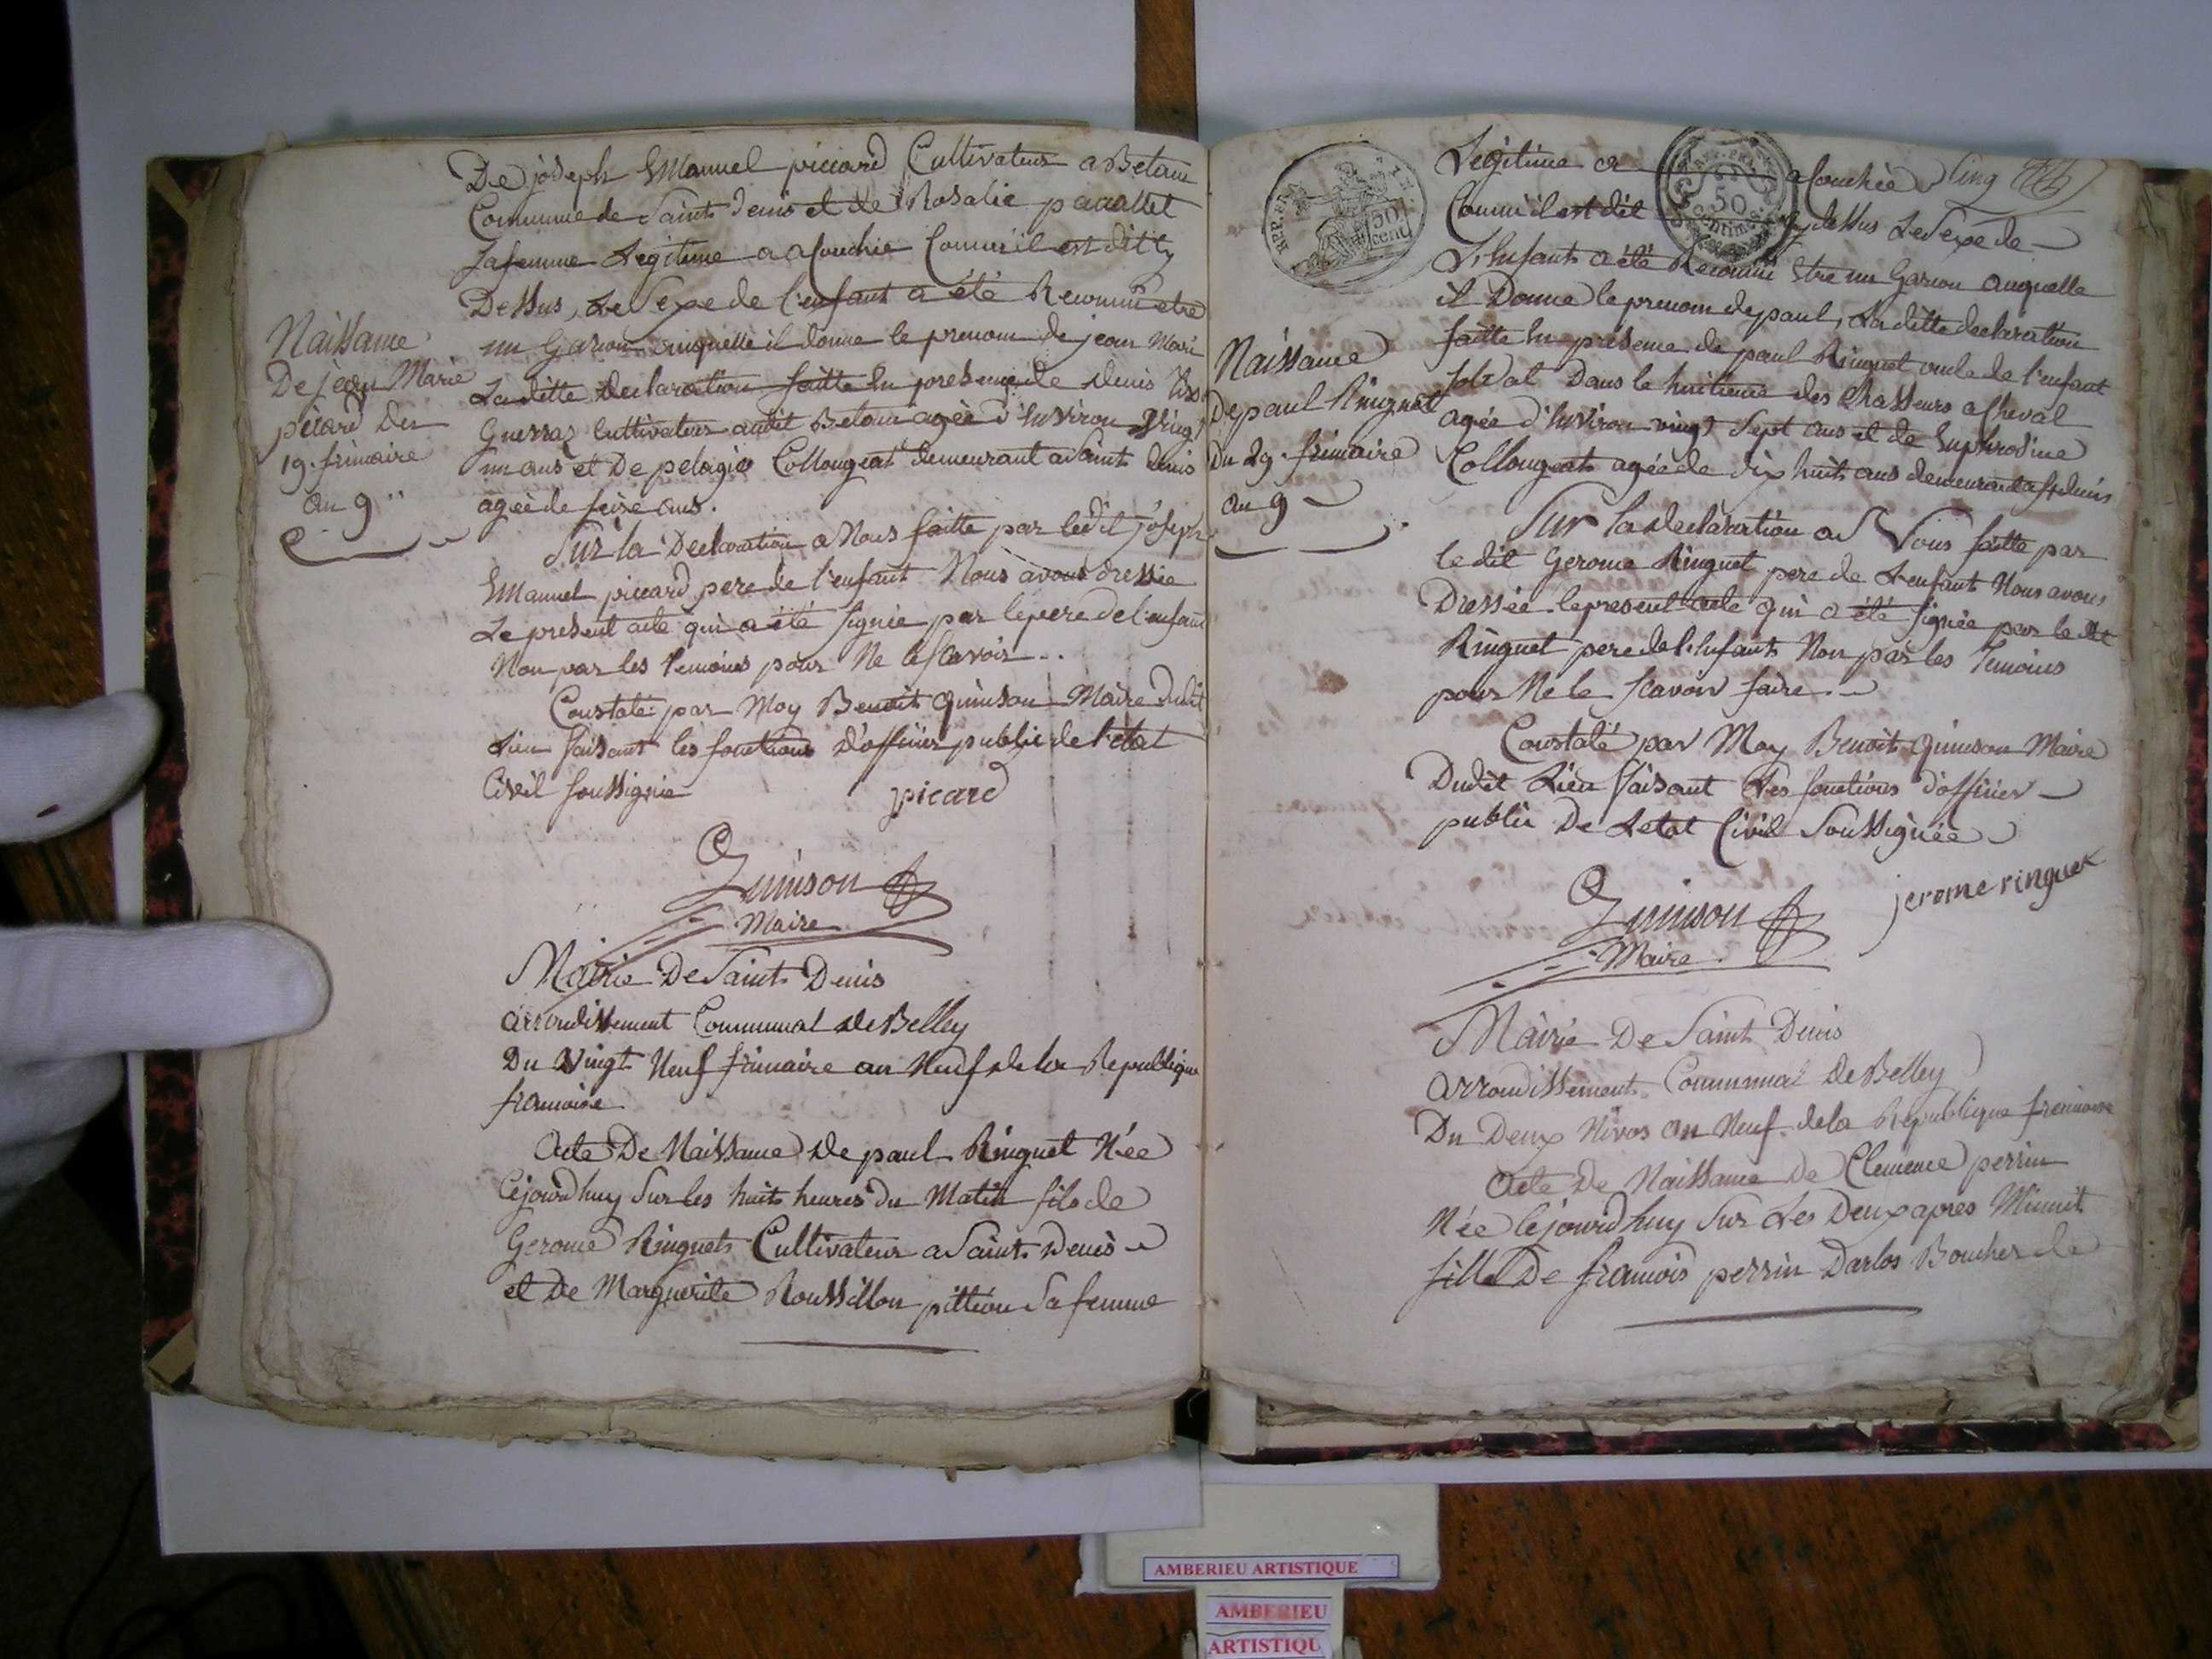 De joseph Emanuel piccard Cultivateur a Betam
Commune de Saint denis et de Rosalie
sa femme Legitime a acouchée Comm'il est dit cy
Dessus, Le Sexe de l'enfant a été Reconnu etre
un Garcon auquelle il donne le prenom de jean Marie
La ditte declaration faitte En presence de denis
Guerraz Cultivateur audit Betam agèe d'Environ Vingt
un ans et De pelagie Collougeat demeurant a Saint denis
agée de seize ans.
Sur la Declaration a Nous faitte par ledit joseph
Emanuel piccard pere de l'enfant Nous avons dressée
Le present acte qui a été signée par le pere de l'enfant
Non par les temoins pour Ne le scavoir..
Constaté par Moy Benoit Quinson Maire dudit
Lieu faisant les fonctions d'officier public de l'état
Civil soussignée
picard
Quinson
Maire
Naissance
De jean Marie
picard du
19. frimaire
an 9"
Mairie De Saint Denis
arrondissement Communal de Belley
Du Vingt Neuf frimaire an Neuf de la Republique
francaise
Acte De Naissance de paul Ringuet Née
Cejourd'huy Sur les huit heures du Matin fils de
Gerome Ringuet Cultivateur a Saint Denis
et De Marguerite Roussillon pittion Sa femme
cinq
Legitime a acouchée
Comm'il est dit Cy dessus Le Sexe de
L'Enfant a été Reconnu Etre un Garcon auquelle
il Donne le prenom de paul, La ditte declaration
faitte En presence de paul Ringuet oncle de l'enfant
soldat Dans le huitieme des Chasseurs a Cheval
agée d'Environ vingt Sept ans et de Euphrosine
Collougeat agée de dix huit ans demeurant a St denis
Sur la declaration a Nous faitte par
le dit Gerome Ringuet pere de L'enfant Nous avons
Dressée le present acte qui a été signée par le dit
Ringuet pere de l'Enfant Non par les Temoins
pour Ne le scavoir faire.
Constaté par Moy Benoit Quinson Maire
Dudit Lieu faisant Les fonctions d'officier
public De Letat Civil Soussignée
jerome ringuet
Quinson
Maire
Naissance
De paul Ringuet
Du 29. frimaire
an 9
Mairie De Saint Denis
arrondissement Communal de Belley
Du Deux Nivos an Neuf de la Republique francaise
Acte de Naissance de Clemence perrin
Née Cejourd'huy Sur Les Deux apres Minuit
fille De francois perrin Darlos Boucher de
50
cent
50
centimes
AMBERIEU ARTISTIQUE
AMBERIEU
ARTISTIQU